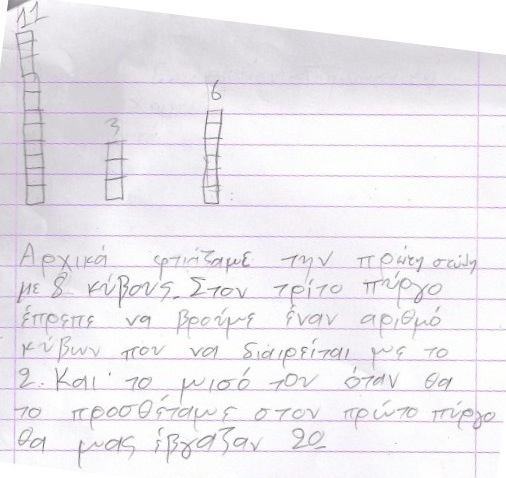 11
3
6
Αρχικά φτιάξαμε την πρώτη στήλη
με 8 κύβους. Στον τρίτο πύργο
έπρεπε να βρούμε έναν αριθμό
κύβων που να διαιρείται με το
2. Και το μισό του όταν θα
το προσθέταμε στον πρώτο πύργο
θα μας έβγαζαν 20